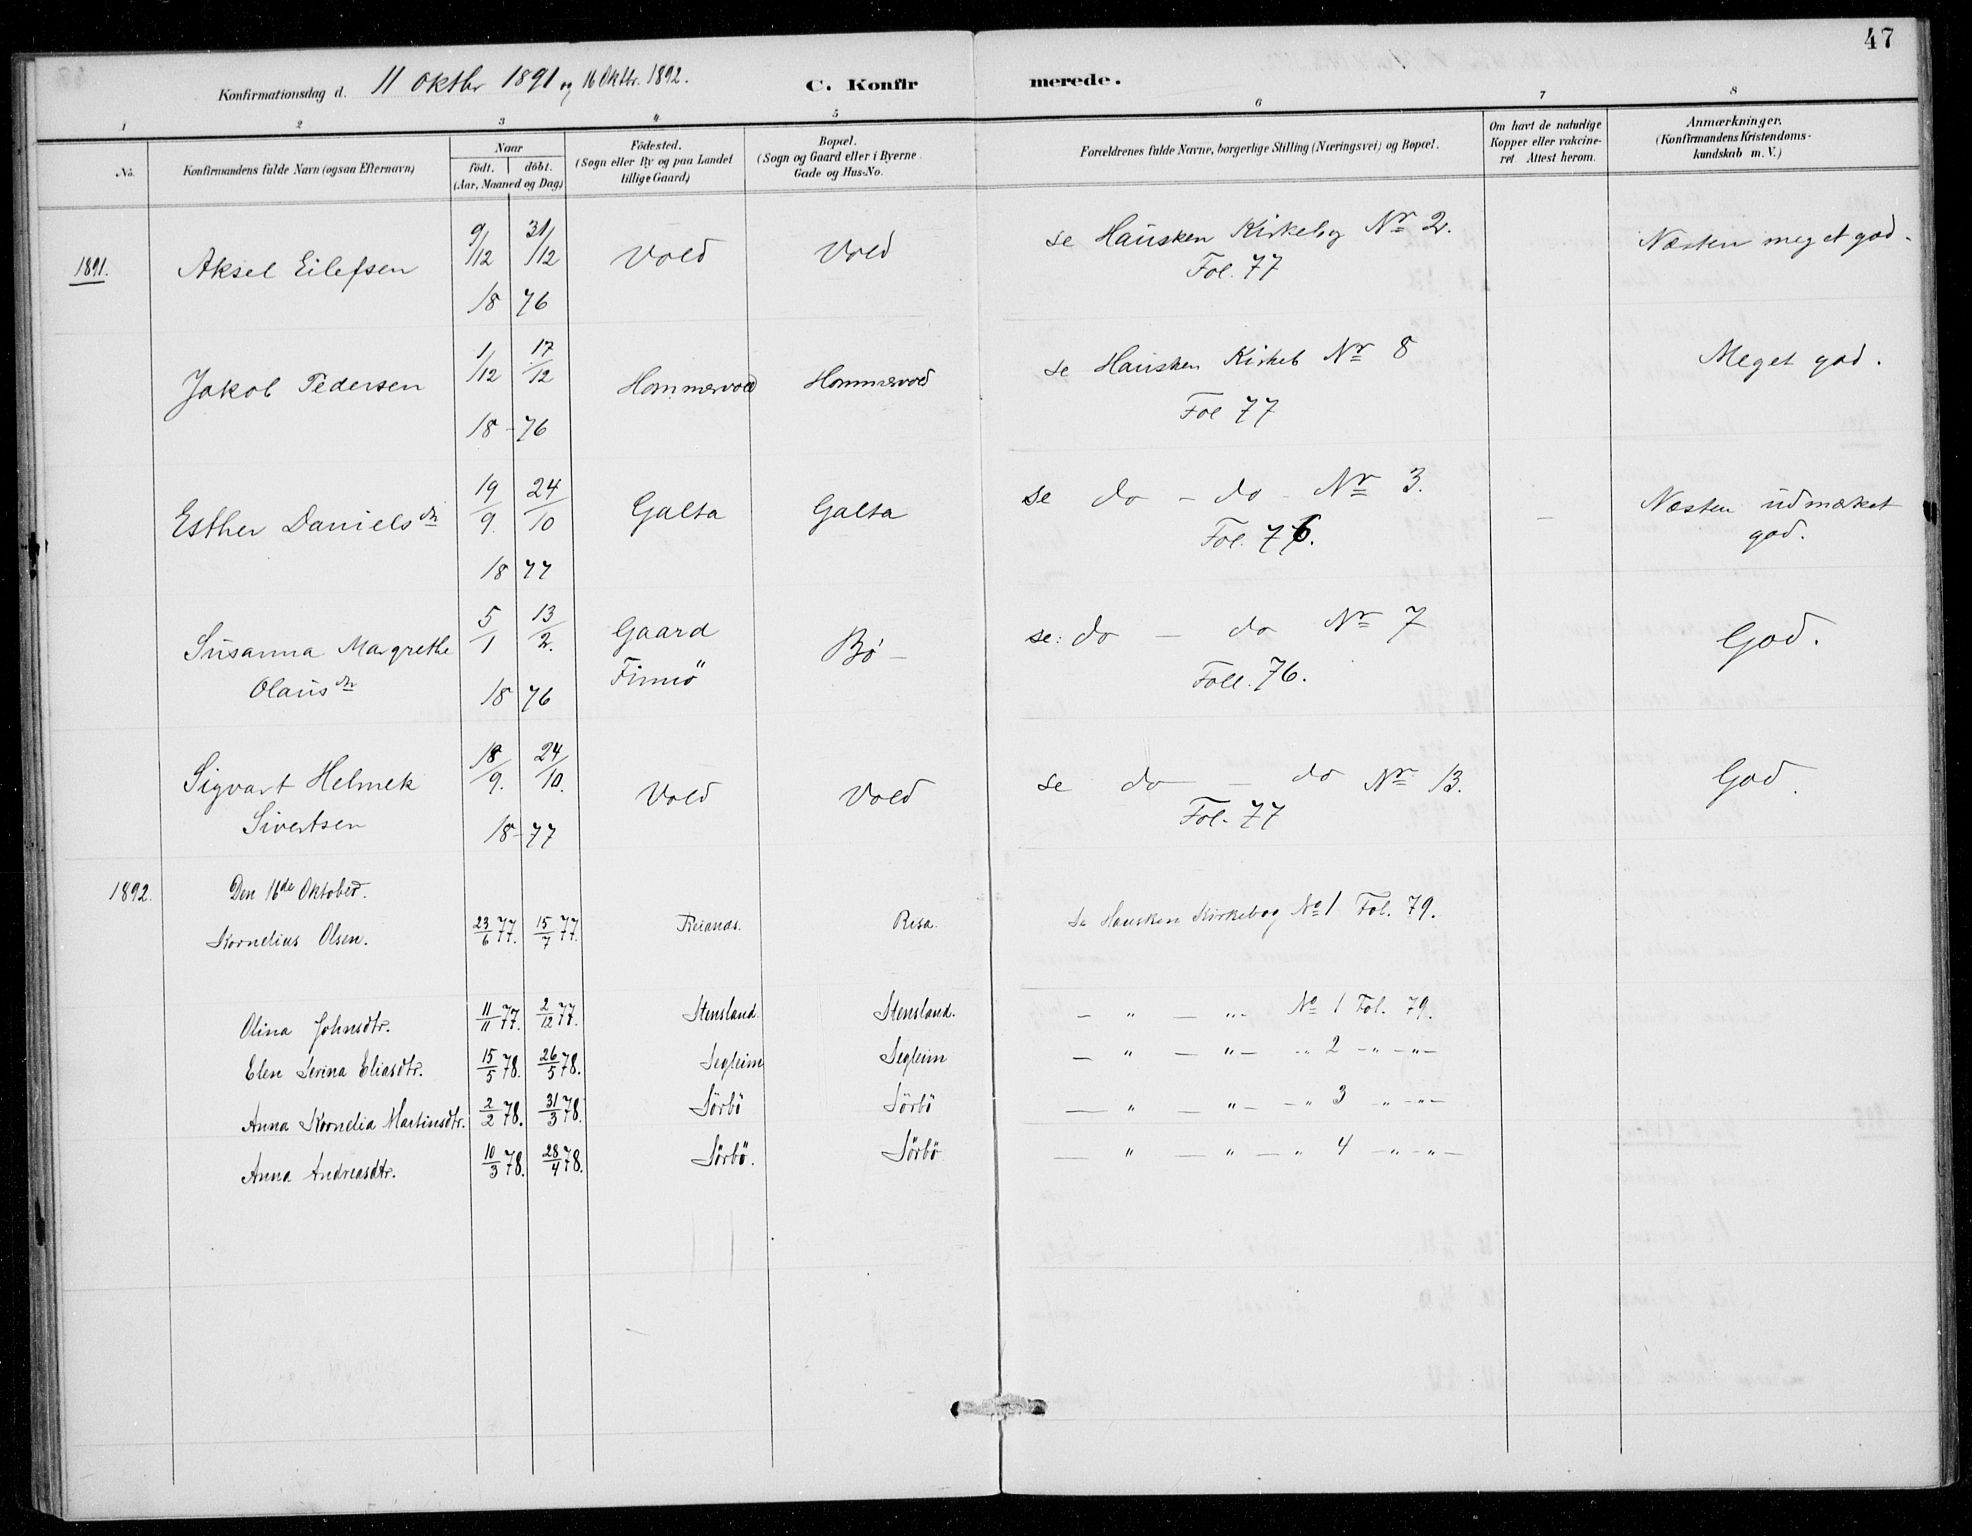 47
Konfirmationsdag d. 11 Oktbr 1891 og 16 Oktbr. 1892. C. Konfirmerede.
1 2 3 4 5 6 7 8
No. Konfirmandens fulde Navn (ogsaa Efternavn)
Naar
födt. döbt.
(Aar, Maaned og Dag)
Födested.
(Sogn eller By og paa Landet
tillige Gaard)
Bopæl.
(Sogn og Gaard eller i Byerne
Gade og Hus-No.
Forældrenes fulde Navne, borgerlige Stilling (Næringsvei) og Bopæl.
Om havt de naturlige
Kopper eller vakcine-
ret Attest herom.
Anmærkninger.
(Konfirmandens Kristendoms-
kundskab m. V.)
1891. Aksel Eilefsen 9/12 31/12 Vold Vold se Hausken Kirkebog Nr 2. Næsten meget god.
18 76 Fol. 77
Jakob Pedersen 1/12 17/12 Hommervold Hommervold se Hausken Kirkeb Nr 8 Meget god.
18-76 Fol 77
Esther Danielsdr 19/9. 24/10 Galta Galta se do - do - Nr 3. - Næsten udmærket
18 77 Fol. 76. god.
Susanna Margrethe 5/1 13/2. Gaard Bø - se: do - do Nr 7 God.
Olausdr 18 76 Finnö Foll. 76.
Sigvart Helmek 18/9. 24/10. Vold Vold se do - do Nr 13. God.
Sivertsen 18-77 Fol. 77
1892. Den 16de Oktober.
Kornelius Olsen. 23/6 77. 15/7 77. Reianes. Resa. Se Hausken Kirkebog No 1 Fol. 79.
Olina Johnsdtr. 11/11 77. 2/12 77. Stensland. Stensland. - " - "- No 1 Fol. 79.
Elen Serina Eliasdtr. 15/5 78. 26/5 78. Segleim Segleim - " - "- -" 2 -"- -"-
Anna Kornelia Martinsdtr. 2/2 78. 31/3 78. Sörbö Sörbö - " - "- -" 3 -"- -"-
Anna Andreasdtr. 10/3 78. 28/4 78. Sörbö. Sörbö - " - " - " 4 -"- -"-